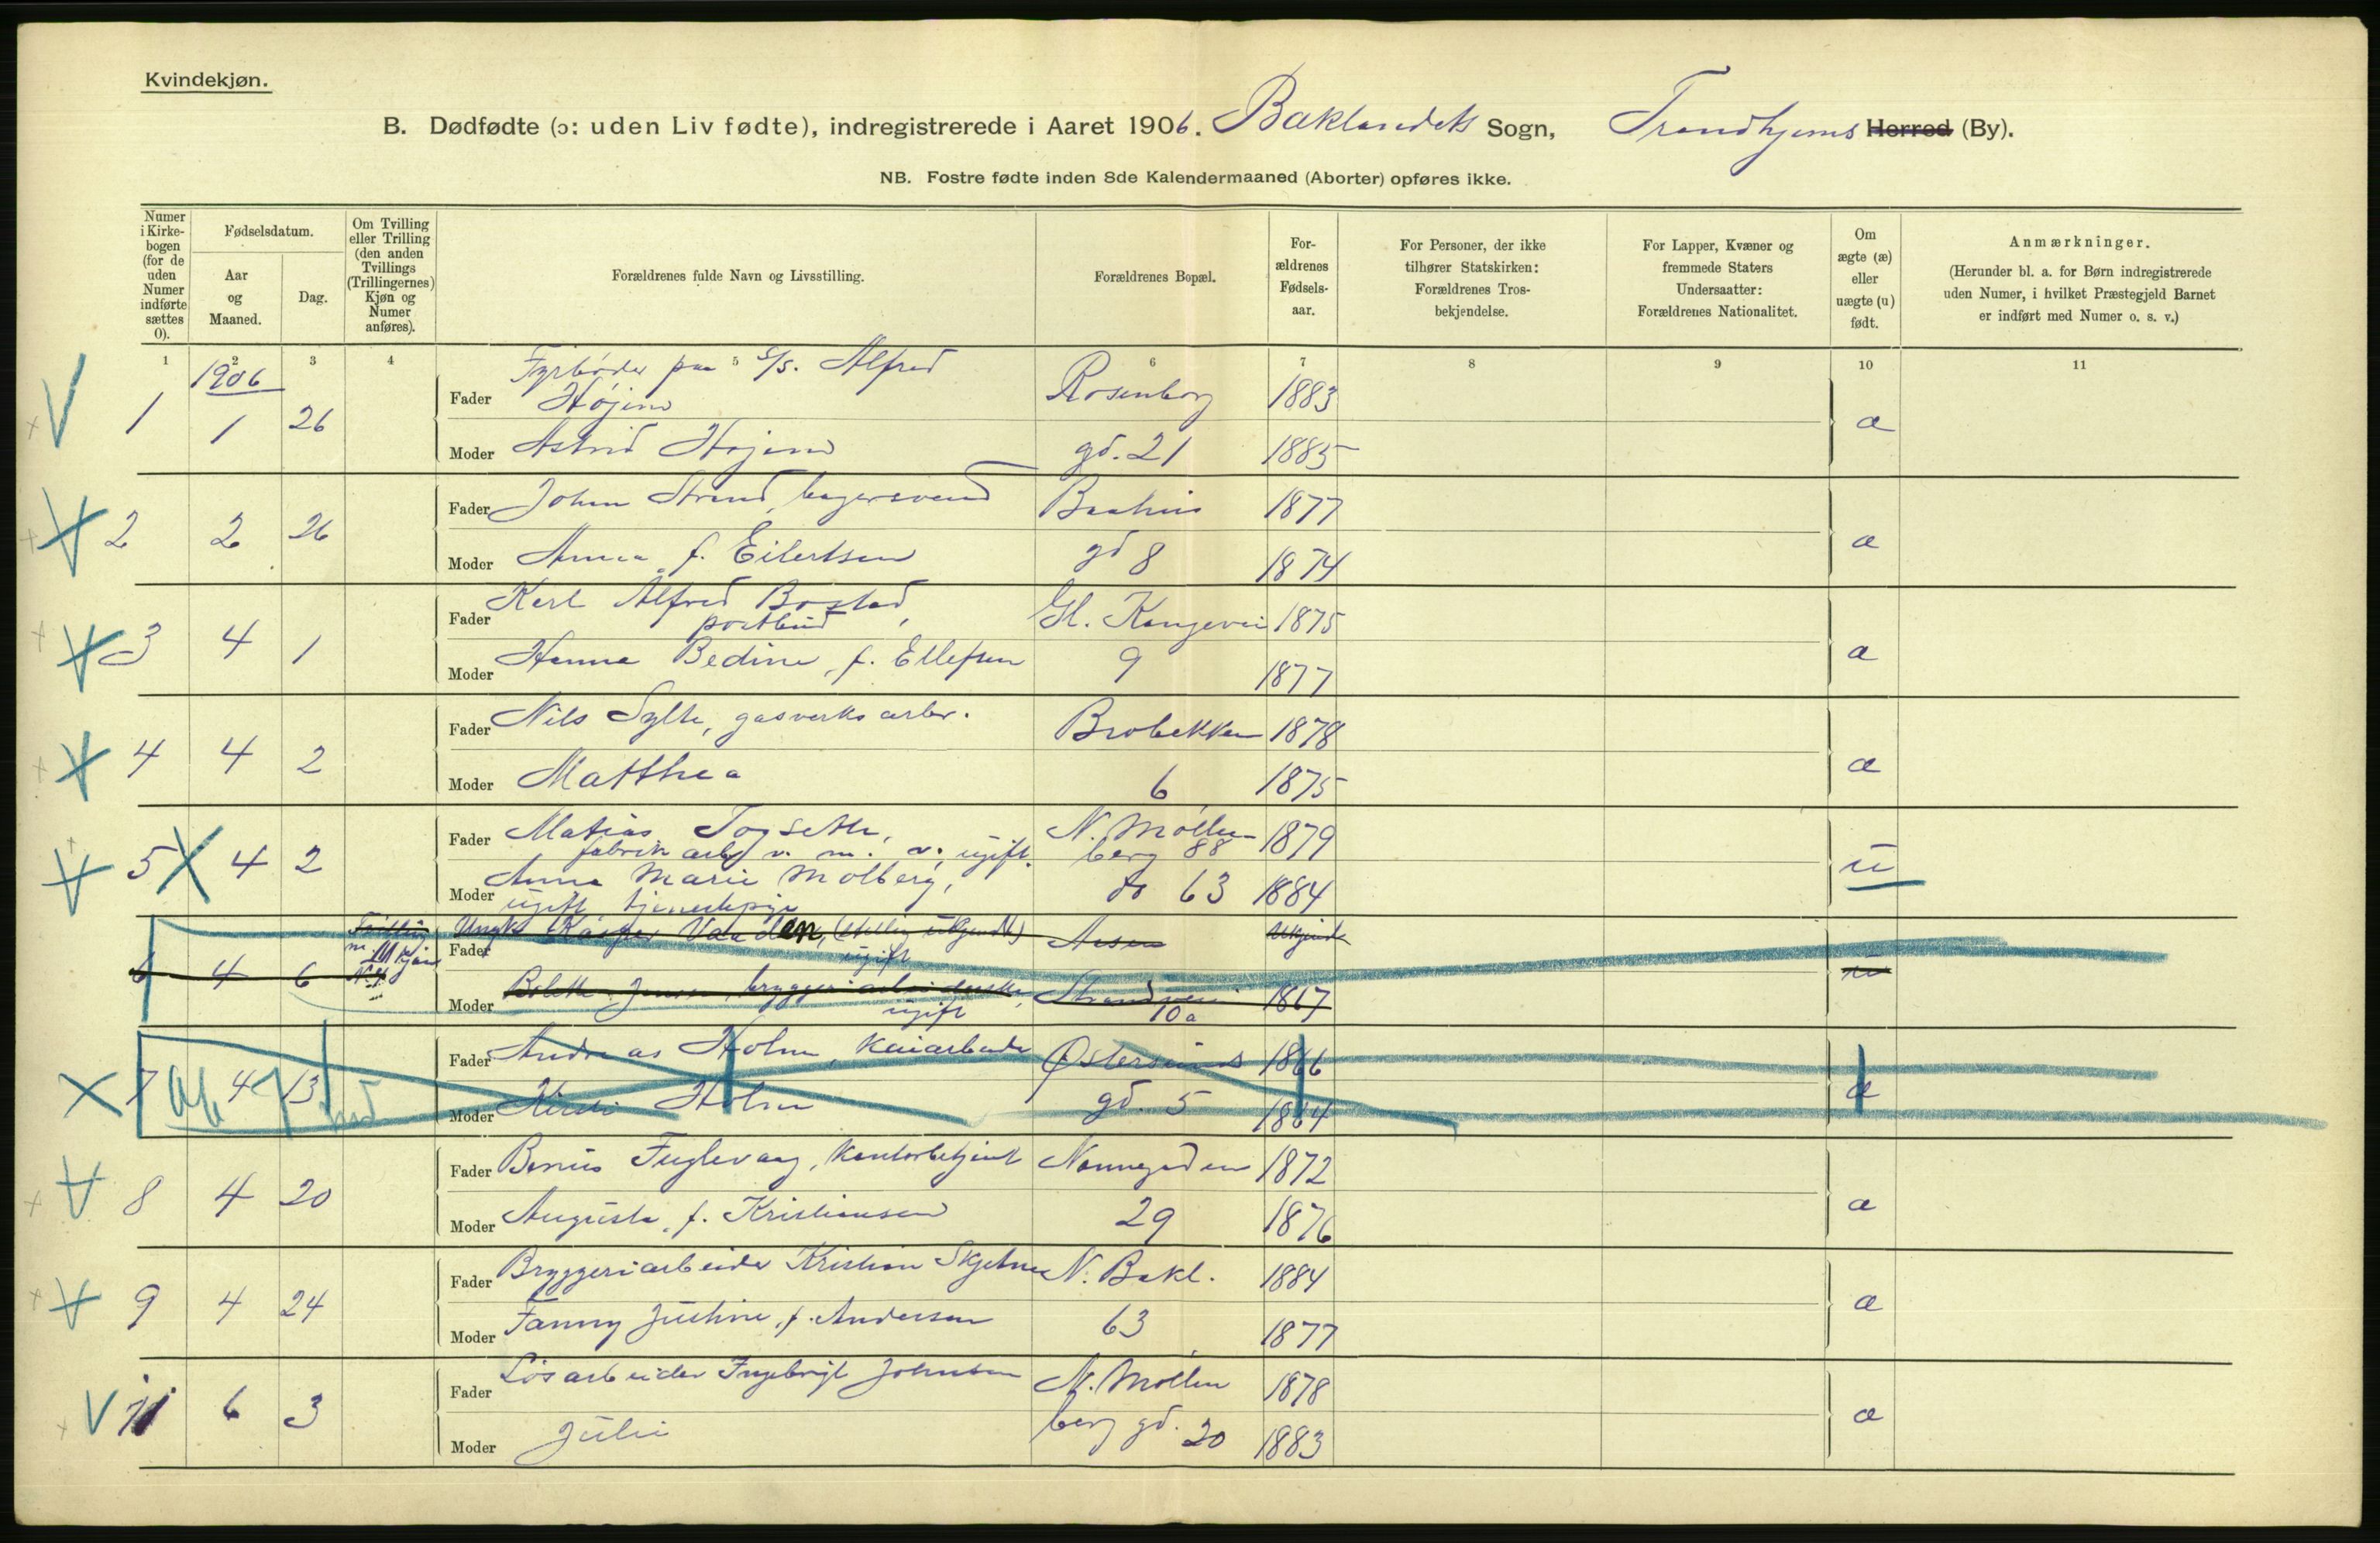 Kvindekjøn.
B. Dødfødte (ɔ: uden Liv fødte), indregistrerede i Aaret 1906. Baklandets Sogn, Trondhjems Herred (By).
NB. Fostre fødte inden 8de Kalendermaaned (Aborter) opføres ikke.
Numer i Kirkebogen (for de uden Numer indførte sættes 0).
Fødselsdatum.
Aar og Maaned.
Dag.
Om Tvilling eller Trilling (den anden Tvillings (Trillingernes) Kjøn og Numer anføres).
Forældrenes fulde Navn og Livsstilling.
Forældrenes Bopæl.
Forældrenes Fødselsaar.
For Personer, der ikke tilhører Statskirken: Forældrenes Trosbekjendelse.
For Lapper, Kvæner og fremmede Staters Undersaatter: Forældrenes Nationalitet.
Om ægte (æ) eller uægte (u) født.
Anmærkninger.
(Herunder bl. a. for Børn indregistrerede uden Numer, i hvilket Præstegjeld Barnet er indført med Numer o. s. v.)
1 2 3 4 5 6 7 8 9 10 11
1906
Fyrbøder paa S/S. Alfred
1 1 26 Fader Højem Rosenborg 1883 æ
Moder Astrid Højem gd. 21 1885
2 2 26 Fader Johan Strand, bagersvend Baahus 1877 æ
Moder Anna, f. Eilertsen gd 8 1874
3 4 1 Fader Karl Alfred Bostad, Gl. Kongevei 1875 æ
postbud
Moder Hanna Bedine, f. Ellefsen 9 1877
4 4 2 Fader Nils Sylte, gasverks arbr. Brobekken 1878 æ
Moder Matthea 6 1875
5 4 2 Fader Matias Togseth, N. Møllen 1879 u
fabrik arb v. m. v., ugift. berg 88
Moder Anna Marie Molberg, do 63 1884
ugift tjenestepige
6 4 6 Trilling Fader Ungk. Kasper Vaaden, (stilling ukjendt) Aasen Ukjendt u
ugift
Moder Bolette Jensen, bryggeriarbeiderske, Strandveien 1867
ugift 10a
7 4 13 Fader Andreas Holm, kaiarbeider Østersunds 1866 æ
Moder Holm gd. 5 1864
8 4 20 Fader Benius Fuglevaag, kontorbetjent Nonnegaden 1872 æ
Moder Augusta, f. Kristiansen 29 1876
9 4 24 Fader Bryggeriarbeider Kristian Skjetne N. Bakl. 1884 æ
Moder Fanny Justine, f. Andersen 63 1877
11 6 3 Fader Løsarbeider Ingebrigt Johnsen N. Møllen 1878 æ
Moder Julie berg gd. 20 1883